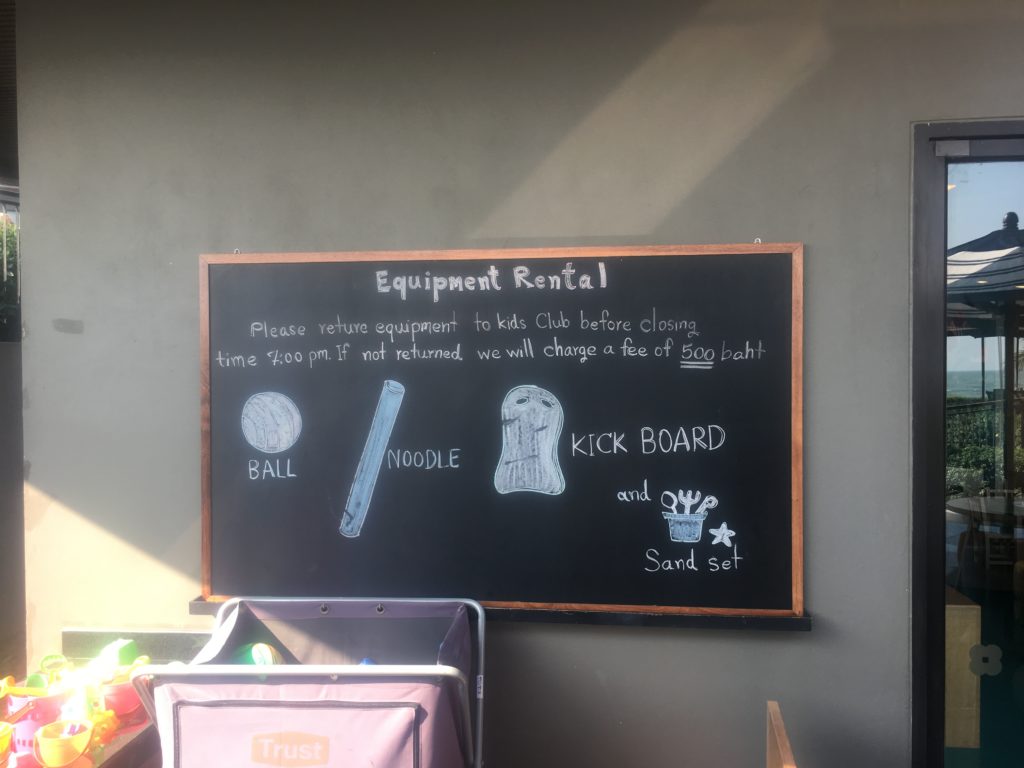 Equipment Rental
Please reture equipment to kids Club before closing
time 7:00 pm. If not returned we will charge a fee of 500 baht
BALL
NOODLE
KICK BOARD
and
Sand set
Trust